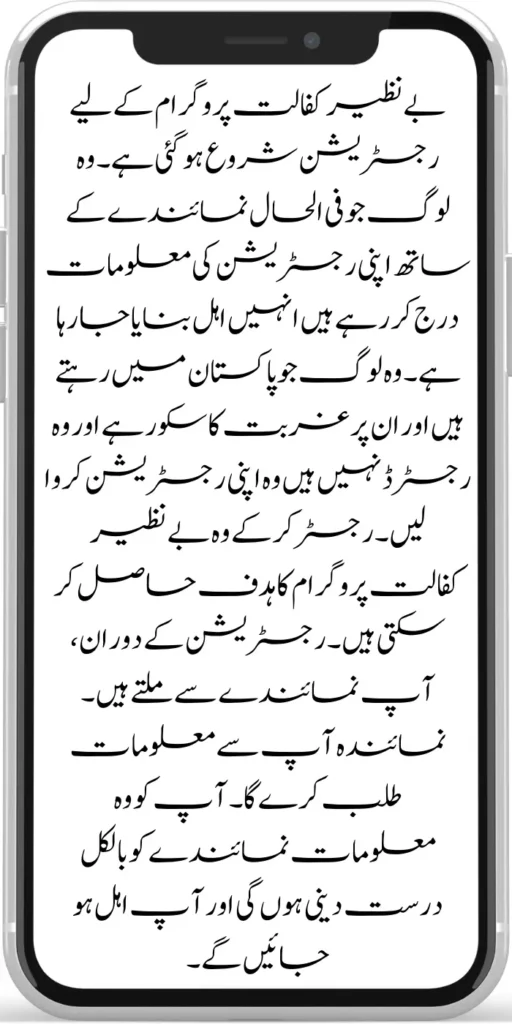 بے نظیر کفالت پروگرام کے لیے
رجسٹریشن شروع ہو گئی ہے۔ وہ
لوگ جو فی الحال نمائندے کے
ساتھ اپنی رجسٹریشن کی معلومات
درج کر رہے ہیں انہیں اہل بنایا جا رہا
ہے۔ وہ لوگ جو پاکستان میں رہتے
ہیں اور ان پر غربت کا سکور ہے اور وہ
رجسٹرڈ نہیں ہیں وہ اپنی رجسٹریشن کروا
لیں۔ رجسٹر کر کے وہ بے نظیر
کفالت پروگرام کا ہدف حاصل کر
سکتی ہیں۔ رجسٹریشن کے دوران،
آپ نمائندے سے ملتے ہیں۔
نمائندہ آپ سے معلومات
طلب کرے گا۔ آپ کو وہ
معلومات نمائندے کو بالکل
درست دینی ہوں گی اور آپ اہل ہو
جائیں گے۔